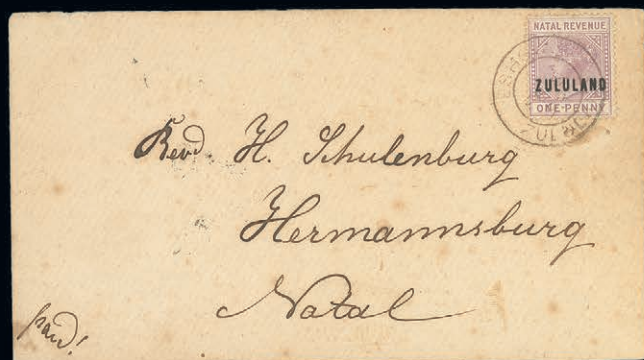 NATAL REVENUE
ZULULAND
ONE-PENNY
Revd. H. Schulenburg
Hermannsburg
Natal
paid!